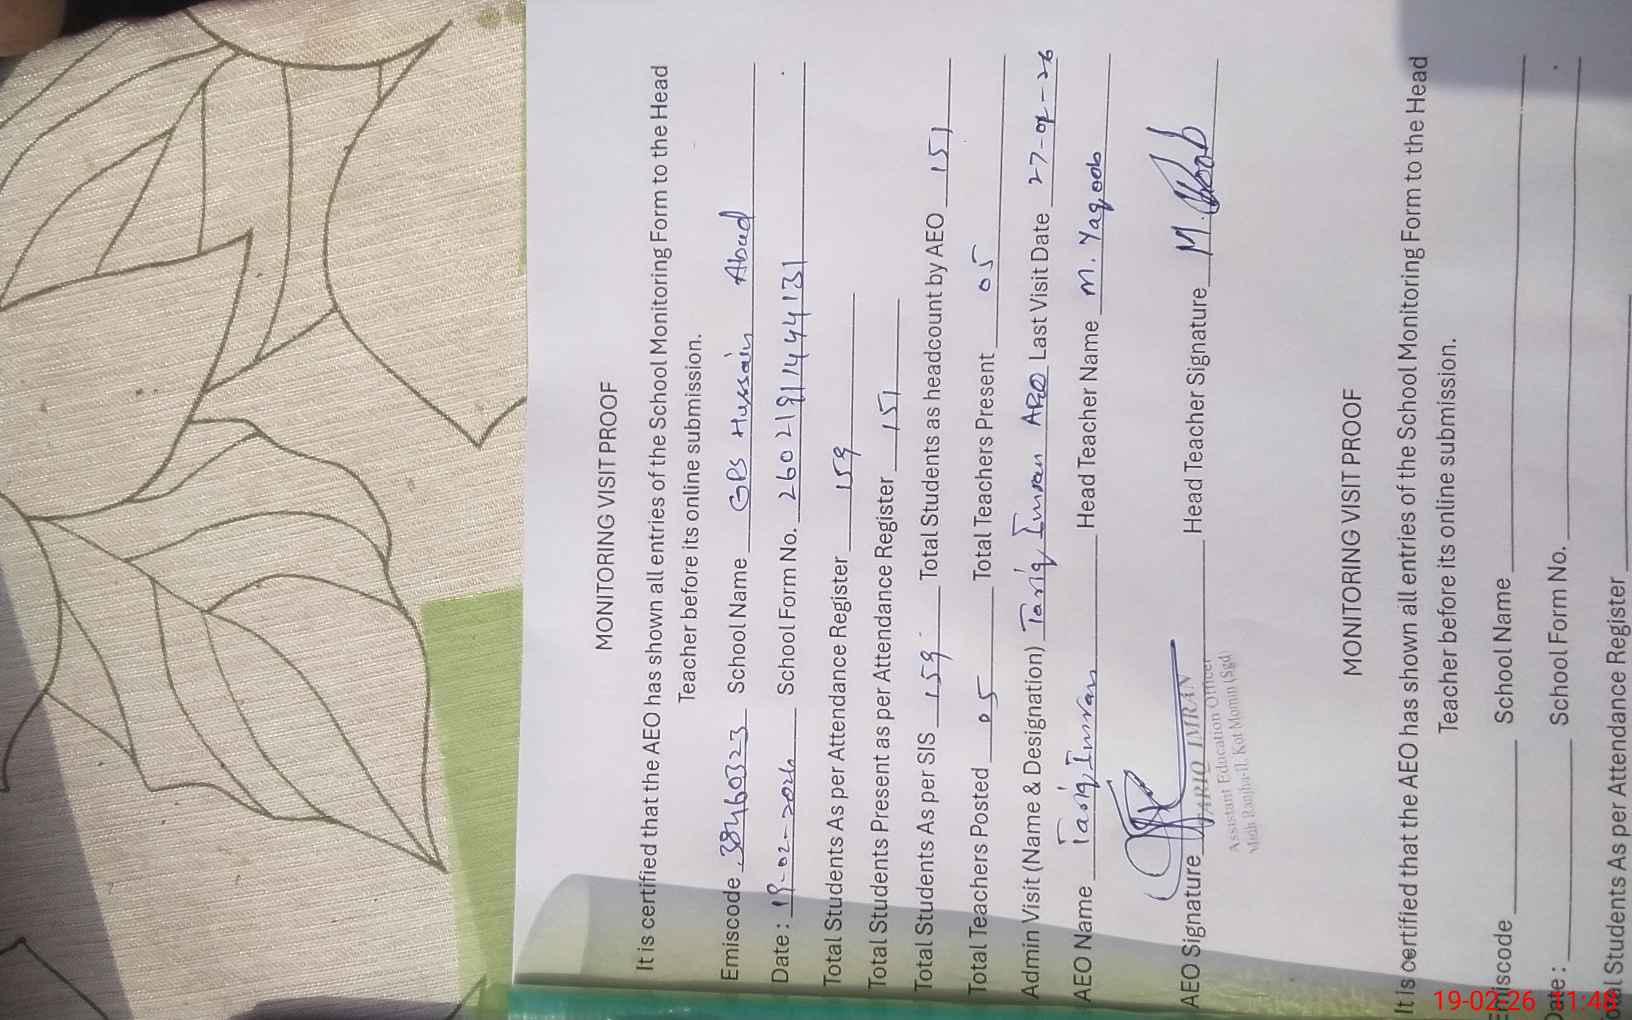 MONITORING VISIT PROOF
It is certified that the AEO has shown all entries of the School Monitoring Form to the Head
Teacher before its online submission.
Emiscode 38460323 School Name GPS Hussain Abad
Date : 19-02-2026 School Form No. 26021911444131
Total Students As per Attendance Register 159
Total Students Present as per Attendance Register 151
Total Students As per SIS 159 Total Students as headcount by AEO 151
Total Teachers Posted 05 Total Teachers Present 05
Admin Visit (Name & Designation) Tariq Imran AEO Last Visit Date 27-01-26
AEO Name Tariq Imran Head Teacher Name M. Yaqoob
AEO Signature Head Teacher Signature
TARIQ IMRAN
Assistant Education Officer
Midh Ranjha-II, Kot Momin (Sgd)
MONITORING VISIT PROOF
It is certified that the AEO has shown all entries of the School Monitoring Form to the Head
Teacher before its online submission.
Emiscode School Name
Date : School Form No.
Total Students As per Attendance Register
19-02-26 11:48